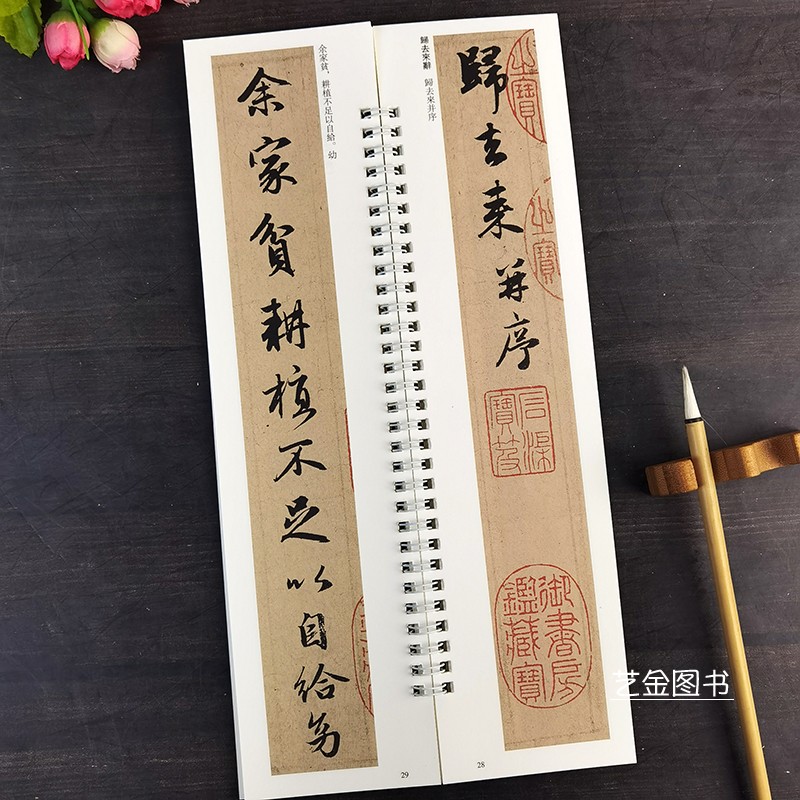 歸去來辭 歸去來并序
歸去来并序
御書房鑑藏寶
28
余家貧，耕植不足以自給。幼
余家貧耕植不足以自給幼
29
艺金图书